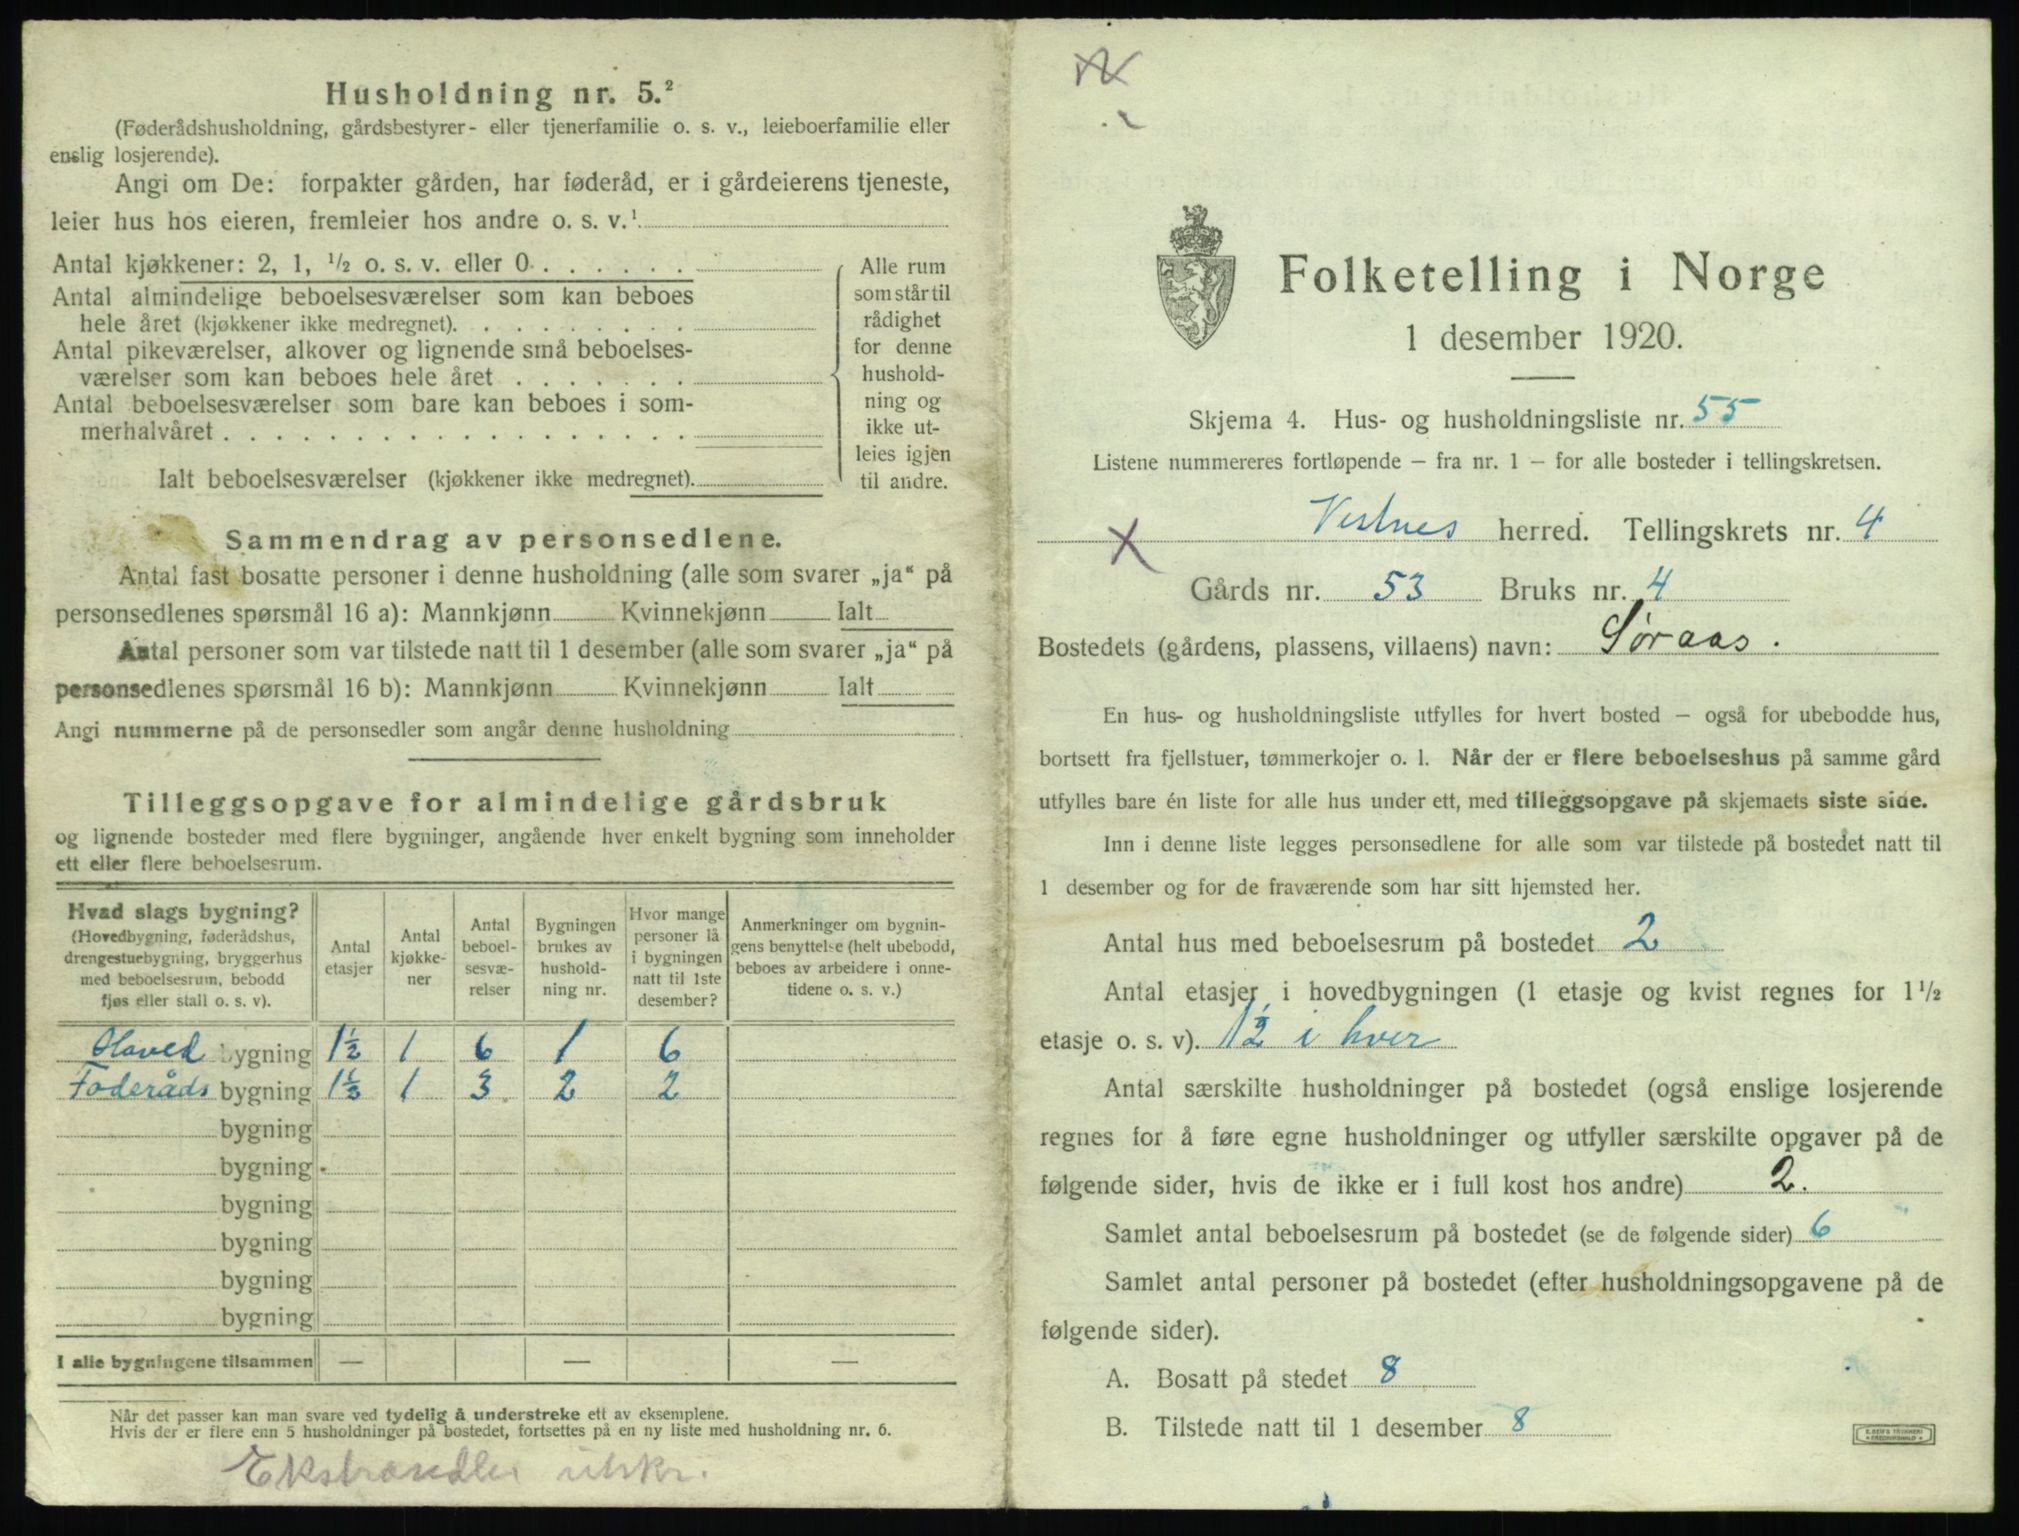 Husholdning nr. 5.²
(Føderådshusholdning, gårdsbestyrer- eller tjenerfamilie o. s. v., leieboerfamilie eller
enslig losjerende).
Angi om De: forpakter gården, har føderåd, er i gårdeierens tjeneste,
leier hus hos eieren, fremleier hos andre o. s. v.¹
Antal kjøkkener: 2, 1, ¹/₂ o. s. v. eller 0
Antal almindelige beboelsesværelser som kan beboes
hele året (kjøkkener ikke medregnet).
Antal pikeværelser, alkover og lignende små beboelses-
værelser som kan beboes hele året
Antal beboelsesværelser som bare kan beboes i som-
merhalvåret
Ialt beboelsesværelser (kjøkkener ikke medregnet).
Alle rum
som står til
rådighet
for denne
hushold-
ning og
ikke ut-
leies igjen
til andre.
Sammendrag av personsedlene.
Antal fast bosatte personer i denne husholdning (alle som svarer „ja“ på
personsedlenes spørsmål 16 a): Mannkjønn Kvinnekjønn Ialt
Antal personer som var tilstede natt til 1 desember (alle som svarer „ja“ på
personsedlenes spørsmål 16 b): Mannkjønn Kvinnekjønn Ialt
Angi nummerne på de personsedler som angår denne husholdning
Tilleggsopgave for almindelige gårdsbruk
og lignende bosteder med flere bygninger, angående hver enkelt bygning som inneholder
ett eller flere beboelsesrum.
Hvad slags bygning?
(Hovedbygning, føderådshus,
drengestuebygning, bryggerhus
med beboelsesrum, bebodd
fjøs eller stall o. s. v).
Antal
etasjer
Antal
kjøkke-
ner
Antal
beboel-
sesvæ-
relser
Bygningen
brukes av
hushold-
ning nr.
Hvor mange
personer lå
i bygningen
natt til 1ste
desember?
Anmerkninger om bygnin-
gens benyttelse (helt ubebodd,
beboes av arbeidere i onne-
tidene o. s. v.)
Hoved bygning 1½ 1 6 1 6
Føderåds bygning 1½ 1 3 2 2
bygning
bygning
bygning
bygning
bygning
bygning
I alle bygningene tilsammen — — —
Når det passer kan man svare ved tydelig å understreke ett av eksemplene.
Hvis der er flere enn 5 husholdninger på bostedet, fortsettes på en ny liste med husholdning nr. 6.
Ekstrasedler utskr.
Folketelling i Norge
1 desember 1920.
Skjema 4. Hus- og husholdningsliste nr. 55
Listene nummereres fortløpende — fra nr. 1 — for alle bosteder i tellingskretsen.
Vestnes herred. Tellingskrets nr. 4
X
Gårds nr. 53 Bruks nr. 4
Bostedets (gårdens, plassens, villaens) navn: Søraas.
En hus- og husholdningsliste utfylles for hvert bosted — også for ubebodde hus,
bortsett fra fjellstuer, tømmerkojer o. l. Når der er flere beboelseshus på samme gård
utfylles bare én liste for alle hus under ett, med tilleggsopgave på skjemaets siste side.
Inn i denne liste legges personsedlene for alle som var tilstede på bostedet natt til
1 desember og for de fraværende som har sitt hjemsted her.
Antal hus med beboelsesrum på bostedet 2
Antal etasjer i hovedbygningen (1 etasje og kvist regnes for 1¹/₂
etasje o. s. v). 1½ i hver
Antal særskilte husholdninger på bostedet (også enslige losjerende
regnes for å føre egne husholdninger og utfyller særskilte opgaver på de
følgende sider, hvis de ikke er i full kost hos andre) 2.
Samlet antal beboelsesrum på bostedet (se de følgende sider) 6
Samlet antal personer på bostedet (efter husholdningsopgavene på de
følgende sider).
A. Bosatt på stedet 8
B. Tilstede natt til 1 desember 8